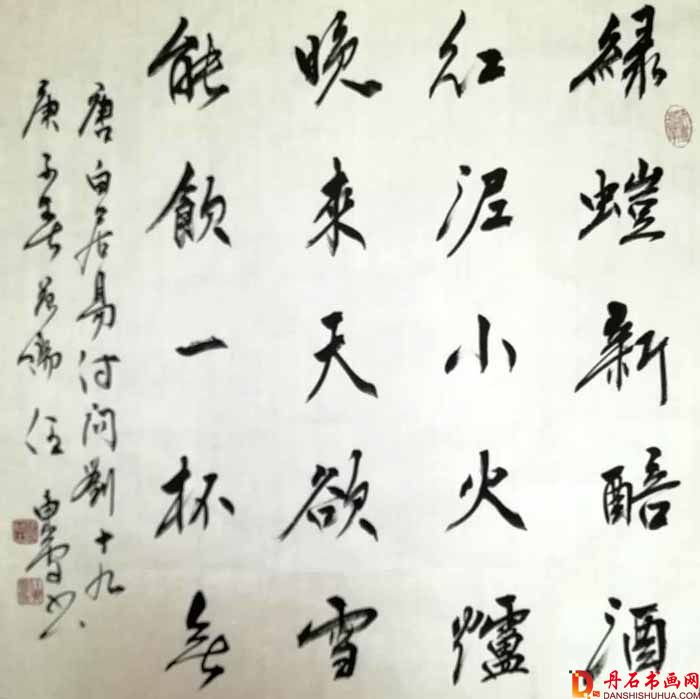 緑螘新醅酒
紅泥小火爐
晚來天欲雪
能飲一杯無
唐白居易詩問劉十九
庚子春
丹石书画网
DANSHISHUHUA.COM